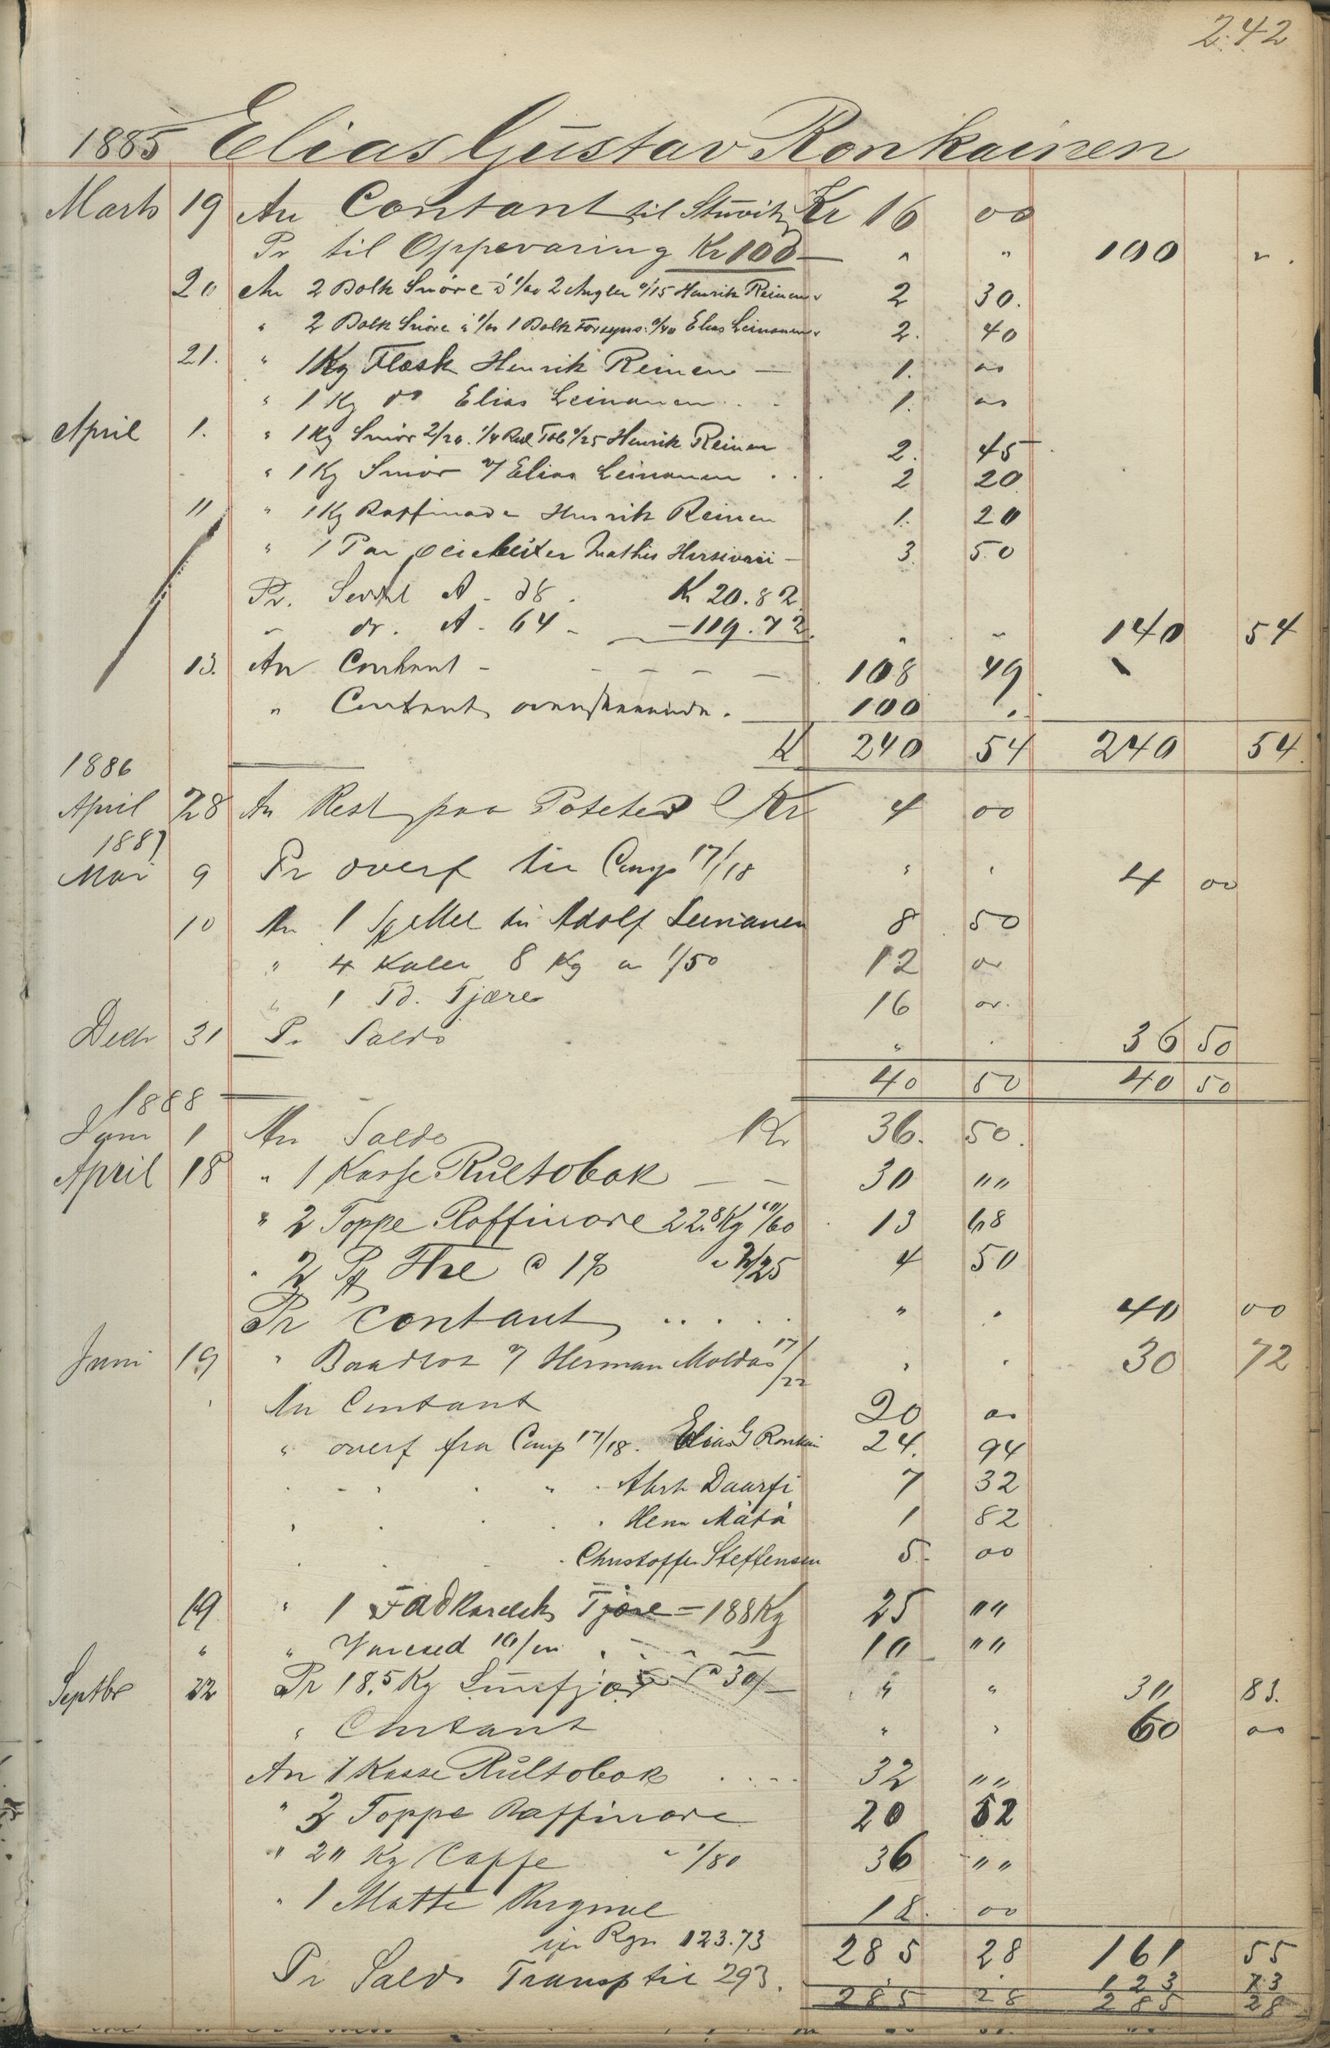 242
1885 Elias Gustav Ronkainen
Marts 19 An Contant til Stuvitz Kr 16 00
Pr til Oppevaring Kr 100 — " " 100 "
20 An 2 Bolk Snöre á 1/00 2 Angler 0/15 Henrik Reinen 2 30.
" 2 Bolk Snöre á 1/00 1 Bolk Forsyns. 0/40 Elias Leinonen 2. 40
21. " 1 Kg Flæsk Henrik Reinen — 1. 00
" 1 Kg do Elias Leinonen . . 1. 00
April 1. " 1 Kg Smör 2/20. 1/4 Rul Tob 0/25 Henrik Reinen 2. 45
" 1 Kg Smör v/ Elias Leinonen . . . 2 20
11 " 1 Kg Raffinade Henrik Reinen 1. 20
" 1 Par Mathis — 3. 50
Pr. Seddel A - 38 . Kr 20.82
" do. A - 64 - — 119.72 " " 140 54
13. An Contant - - - - - 108 49
" Contant ovenstaaende . 100 "
K 240 54 240 54
1886
April 28 An Rest paa Poteter Kr 4 00
1887
Mai 9 Pr overf til Comp 17/18 " " 4 00
10 An 1 til Adolf Leinanen 8 50
" 4 Kaler 8 Kg a 1/50 12 00
" 1 Td. Tjære 16 00.
Decbr 31 Pr Saldo " " 36 50
40 50 40 50
1888
Januar 1 An Saldo Kr 36. 50.
April 18 " 1 Kasse Rultobak — — 30 " "
" 2 Toppe Raffinore 22.8 Kg /60 13 68
" 2 The @ " 2/25 4 50
Pr Contant . . . . . " " 40 00
Juni 19 " Baadlot v/ Herman Moldas 17/22 " " 30 72
" An Contant 20 00
" overf fra Comp 17/18. Elias G Ronkain 24. 94
" " " " Daarfi 7 32
" " " Henr Mätä 1 82
" " " Christoffer Steffensen 5. 00
19 " 1 Fad Tjære = 188 Kg 25 " "
" " 10 " "
Septbr 22 Pr 18.5 Kg @ 30/ — " " 30 83.
" Contant " " 60 00
An 1 Kasse Rultobak . . . . 32 " "
" 3 Toppe Raffinore 20 52
" 20 Kg Caffe " 1/80 36 " "
" 1 Matte Rugmel 18. 00
Rgn 123.73 285 28 161 55
Pr Saldo Transp til 293. 123 73
285 28 285 28